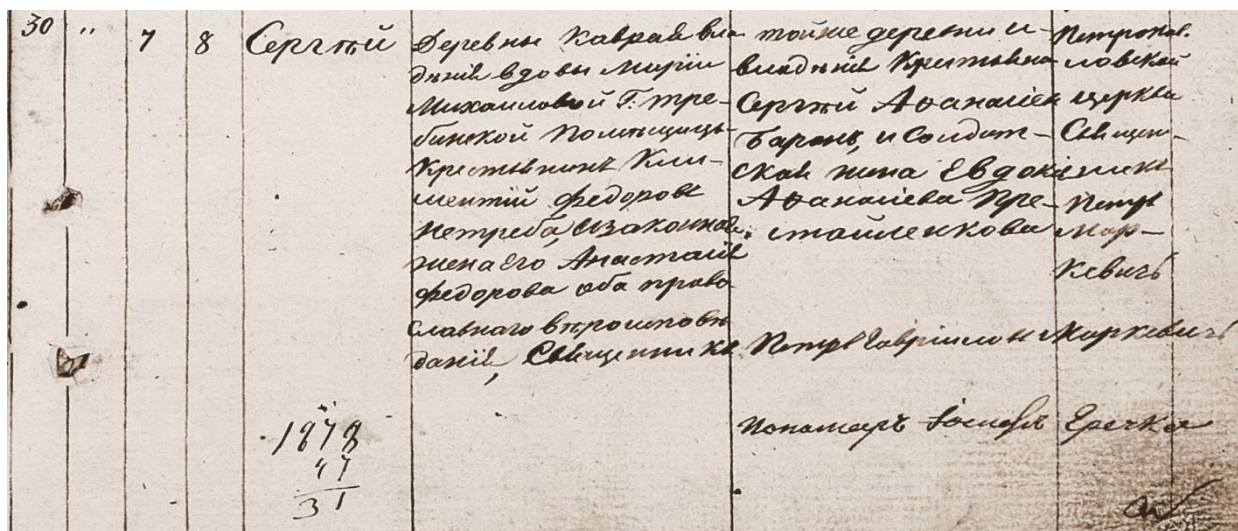 30 " 7 8 Сергѣй
Деревни Каврая вла-
дѣнія вдовы Маріи
Михаиловой Г. тре-
бинской Помѣщицы
Крестьянинъ Кли-
ментій Федоровъ
Нетреба, изаконная
жена его Анастасія
Федорова оба право
славнаго вѣроисповѣ
данія, Священникъ
тойже деревни и
владѣнія Крестьяни
Сергѣй Аѳанасіев
Барань, и Солдат-
ская жена Евдокія
Аѳанасіева Пре-
стайленкова
Петропав-
ловской
церкви
Священ-
никъ
Петръ
Мар-
кевичъ
Петръ Гавріиловъ Маркевичъ
Пономарь Іосифъ Еречка
1878
47
31